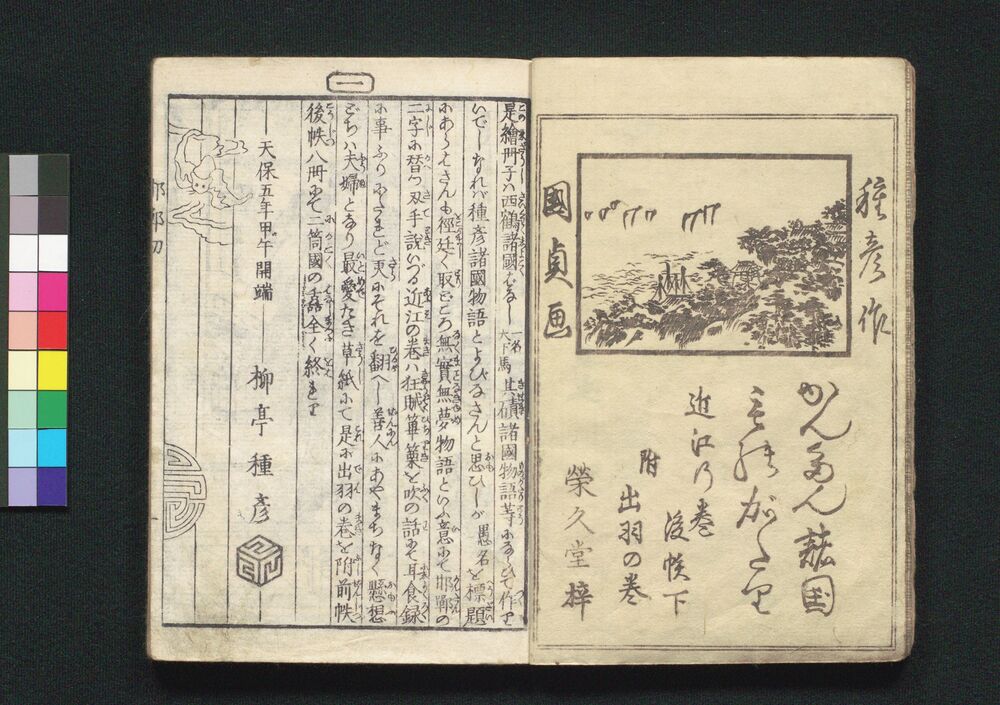 種彦作
國貞画
かんたん諸国
ものがたり
近江乃巻
後帙下
附
出羽の巻
榮久堂梓
一
是繪册子ハ西鶴諸國はなし 一名大下馬 其磧諸國物語等にならひて作り
いでしなれバ種彦諸國物語とよびなさんと思ひしが愚名を標題
にあらはさんも
無實無夢物語といふ意にて邯鄲の
二字に替つ
近江の巻ハ
篳篥を吹の話にて耳食録
に事ふり
それを翻へし善人にあやまちなく懸想
どちハ夫婦となり最愛たき草紙にて是に出羽の巻を附前帙
後帙八冊にて二箇國の
全く終
天保五年甲午開端
柳亭種彦